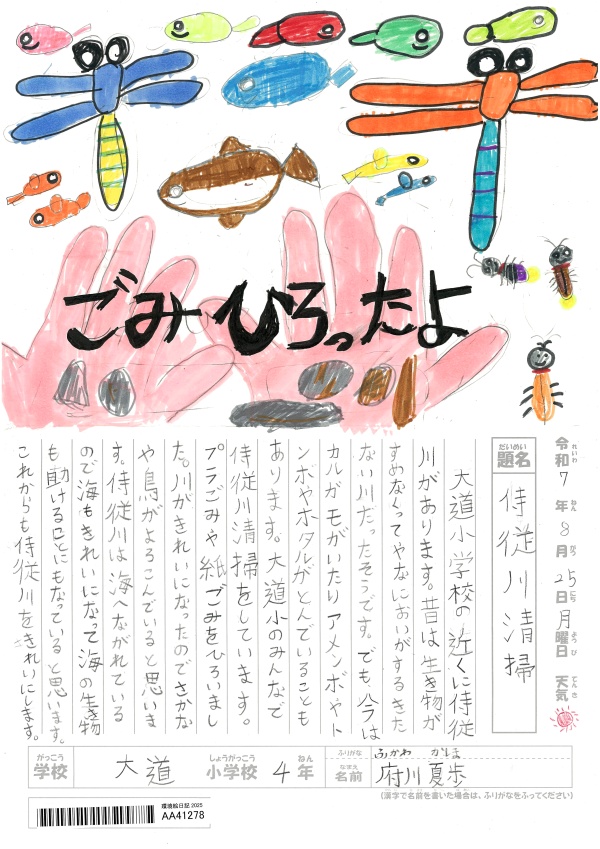 ごみひろったよ
令和7年8月25日月曜日 天気
れいわ ねん がつ にち ようび てんき
だいめい
題名 侍従川清掃
大道小学校の近くに侍従
川があります。昔は生き物が
すめなくってやなにおいがするきた
ない川だったそうです。でも、今は
カルガモがいたりアメンボやト
ンボやホタルがとんでいることも
あります。大道小のみんなで
侍従川清掃をしています。
プラごみや紙ごみをひろいまし
た。川がきれいになったのでさかな
や鳥がよろこんでいると思いま
す。侍従川は海へながれている
ので海もきれいになって海の生き物
も助けることにもなっていると思います。
これからも侍従川をきれいにします。
がっこう しょうがっこう ねん
学校 大道 小学校 4年
ふりがな ふかわ
なまえ
名前 府川夏歩
(漢字で名前を書いた場合は、ふりがなをふってください)
環境絵日記 2025
AA41278